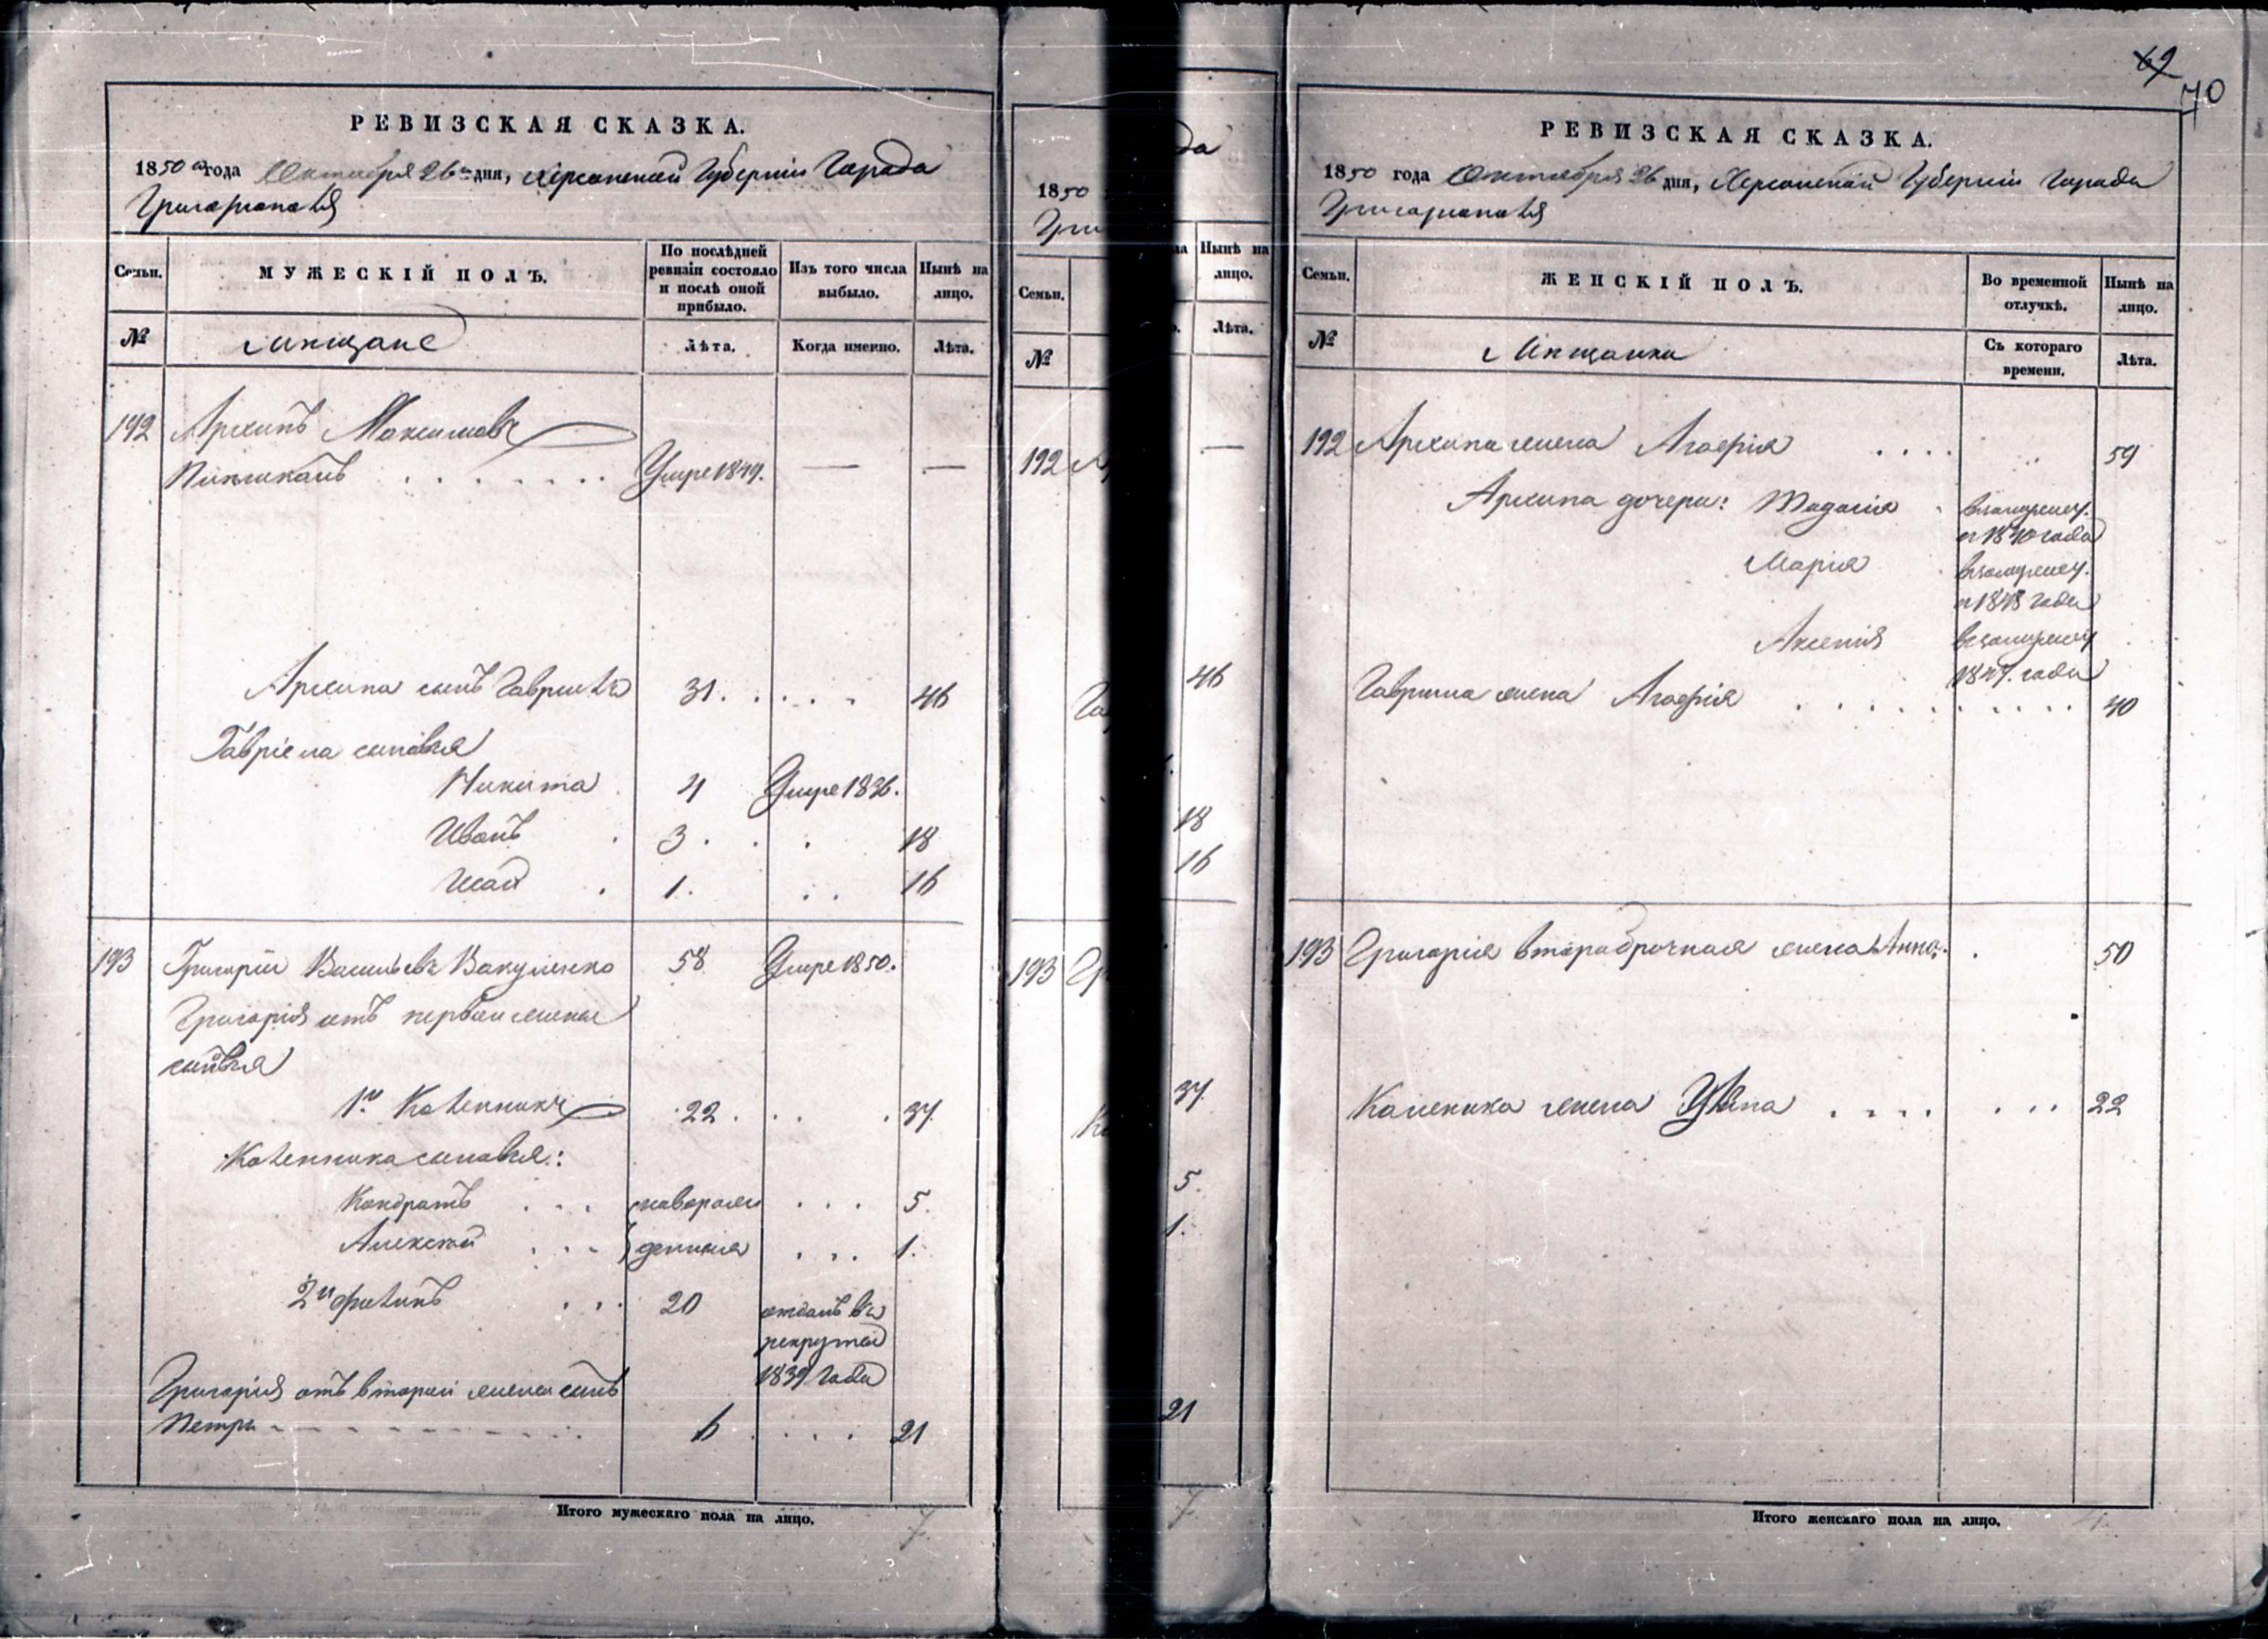 РЕВИЗСКАЯ СКАЗКА.
1850 года Октября 26 дня, Херсонской Губерніи Города
Григоріополя
Семьи.
МУЖЕСКІЙ ПОЛЪ.
По послѣдней ревизіи состояло и послѣ оной прибыло.
Изъ того числа выбыло.
Нынѣ на лицо.
№
Мѣщане
Лѣта.
Когда именно.
Лѣта.
192 Архипъ Максимовъ
Умре 1849. — —
Архипа сынъ Гаврило 31 46
Гавріела сыновья
Никита 4 Умре 1836.
Иванъ 3 18
Исай 1. 16
193 Григорій Васильевъ Вакуленко 58 Умре 1850.
Григорія отъ первой жены
сыновья
1й Каленникъ 22 37
Каленника сыновья:
Кондратъ новорож 5.
Алексѣй денныя 1.
2й Филипъ 20 отданъ въ
рекруты
1839 года
Григорія отъ второй жены сынъ
Петръ 6 21
Итого мужескаго пола на лицо. 7
1850
Гри
Семьи.
№
192
193
да
Нынѣ на лицо.
Лѣта.
—
46
18
16
37
5.
1.
21
7
69
70
РЕВИЗСКАЯ СКАЗКА.
1850 года Октября 26 дня, Херсонской Губерніи Города
Григоріополя
Семьи.
ЖЕНСКІЙ ПОЛЪ.
Во временной отлучкѣ.
Нынѣ на лицо.
№
Мѣщанки
Съ котораго времени.
Лѣта.
192 Архипа жена Агафія 59
Архипа дочери: взамужеч.
1840 года
Марія взамужеч.
1843 года
Аксенія взамужеч
1847. года
Гаврила жена Агафія 40
193 Григорія второбрачная жена Анна 50
Каленика жена Уляна 22
Итого женскаго пола на лицо. 4.